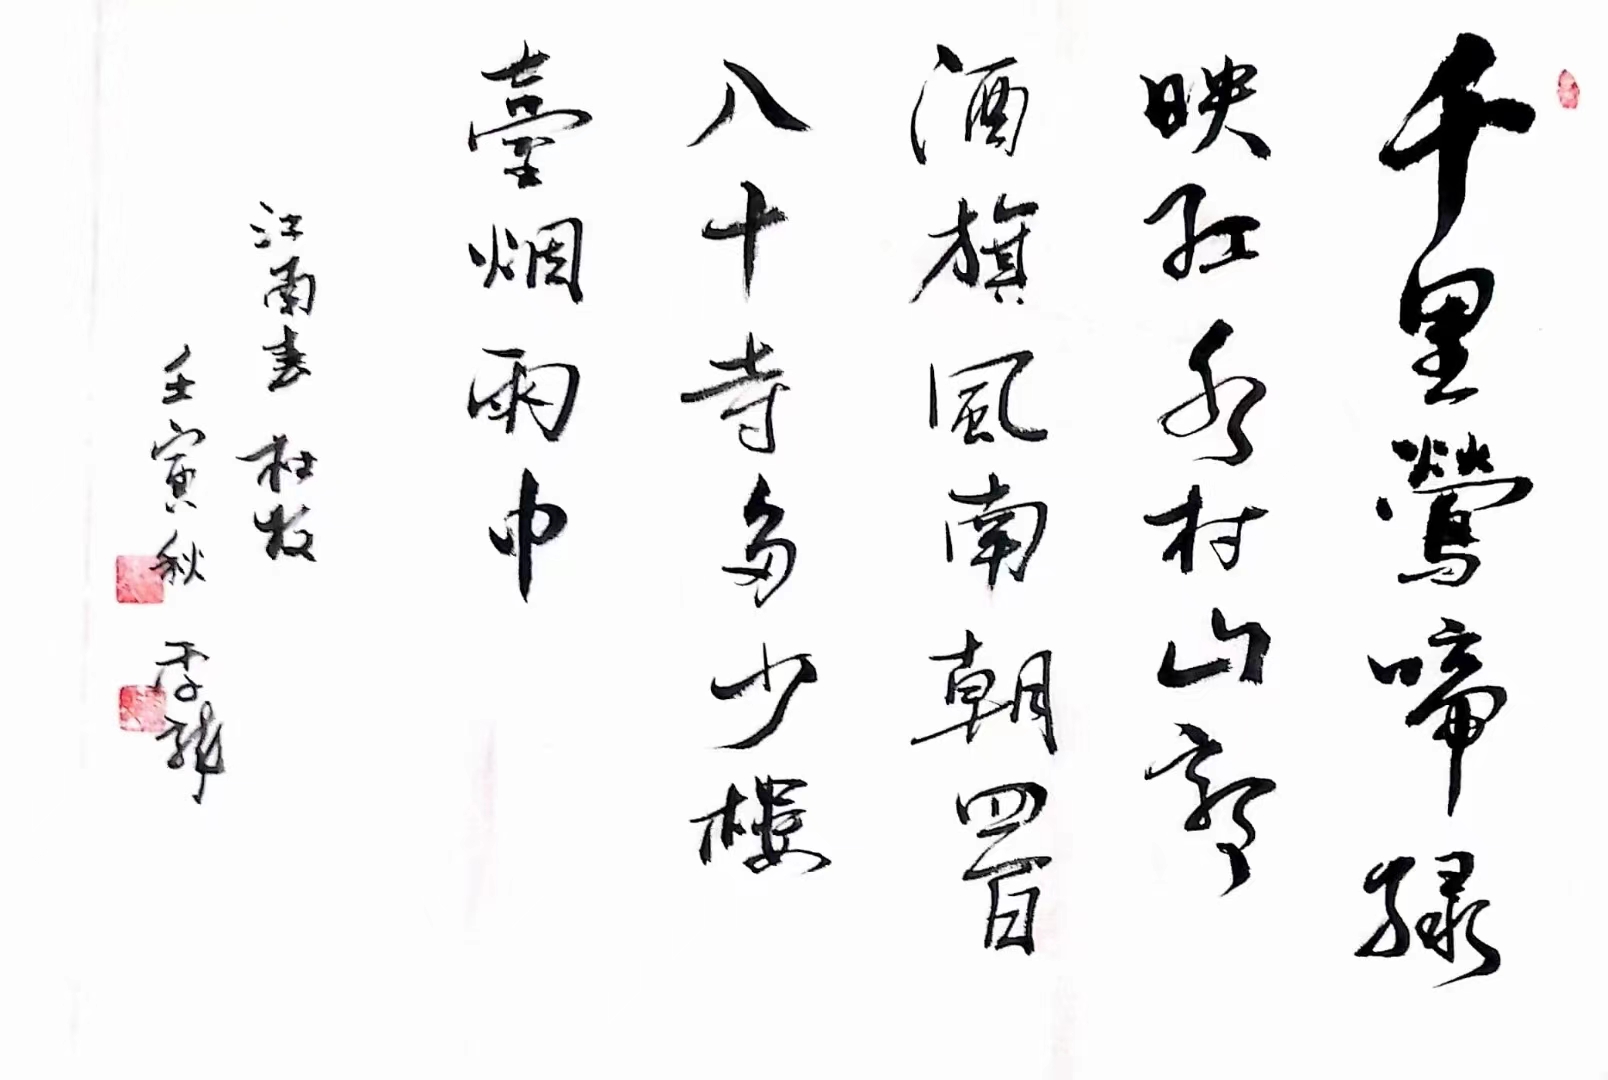 千里鶯啼绿
映红水村山郭
酒旗風南朝四百
八十寺多少樓
臺烟雨中
江南春 杜牧
壬寅秋